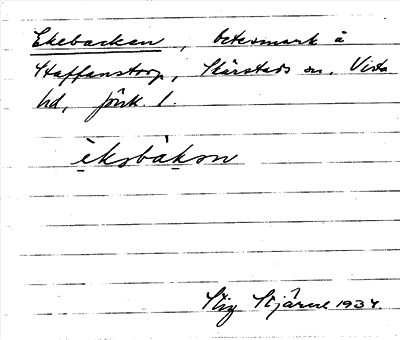 Ekebacken, betesmark å
Staffanstorp, Skärstads sn. Vista
hd, Jönk l.
èksbàkən
Stig Stjärne 1934.